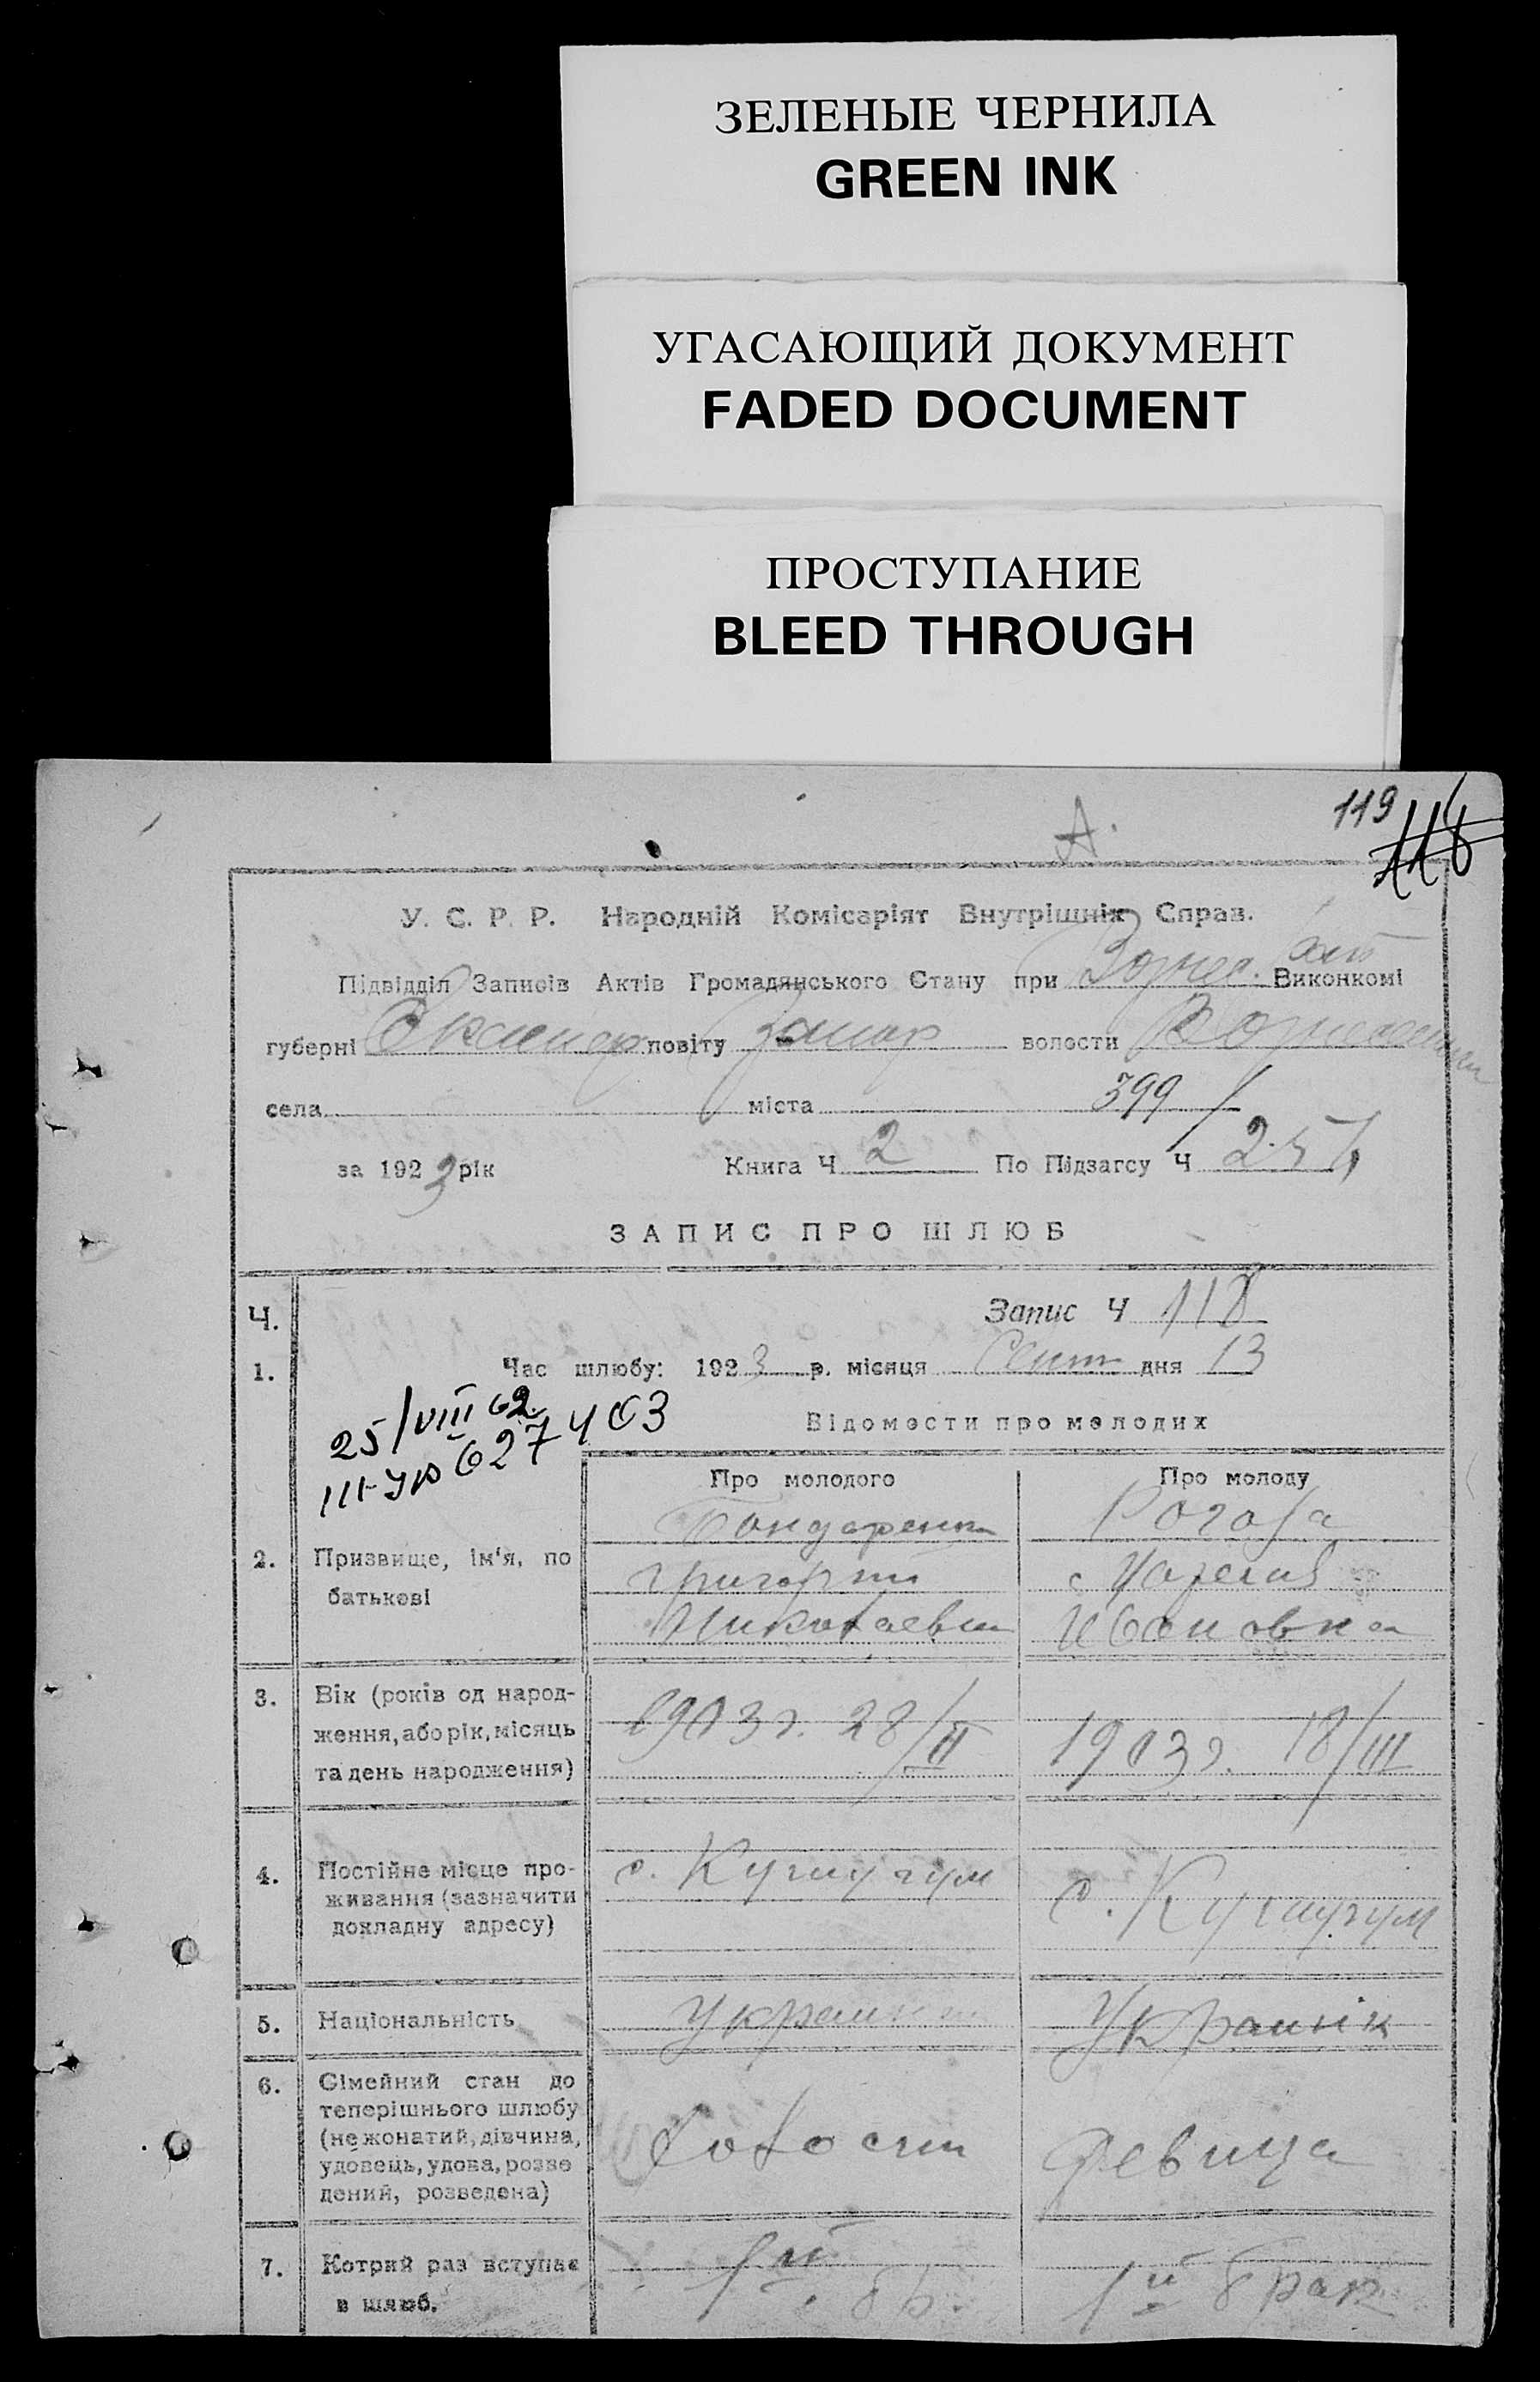 ЗЕЛЕНЫЕ ЧЕРНИЛА
GREEN INK
УГАСАЮЩИЙ ДОКУМЕНТ
FADED DOCUMENT
ПРОСТУПАНИЕ
BLEED THROUGH
119
118
А.
У. С. Р. Р. Народній Комісаріят Внутрішніх Справ.
Підвідділ Записів Актів Громадянського Стану при Вознес. Виконкомі
губерні Екатер повіту Запор волости Вознесенки
села міста 399/
за 1923 рік Книга Ч 2 По Підзагсу Ч
ЗАПИС ПРО ШЛЮБ
Ч. Запис Ч 118
1. Час шлюбу: 1923 р. місяця Сент дня 13
25/VIII 62.
III-УР 627403
Відомости про молодих
Про молодого Про молоду
2. Призвище, ім'я, по батькові
Бондаренко Рогова
Григорий
Николаевич Ивановна
3. Вік (років од народ-
ження, або рік, місяць
та день народження)
1903 г. 28/II 1903 г. 18/III
4. Постійне місце про-
живання (зазначити
докладну адресу)
с. Кушугум с. Кушугум
5. Національність Украин Украинк
6. Сімейний стан до
теперішнього шлюбу
(не жонатий, дівчина,
удовець, удова, розве
дений, розведена)
Холост Девица
7. Котрий раз вступає
в шлюб.
1й бр. 1й брак